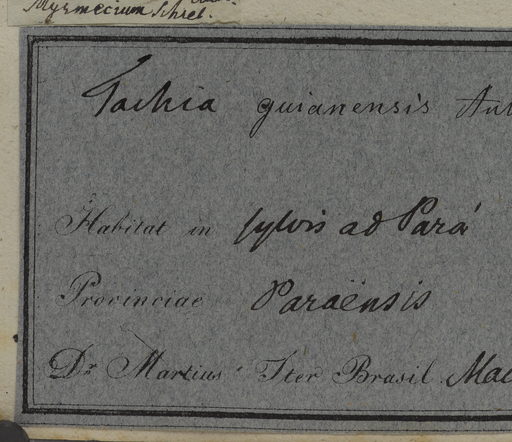 Myrmecium Schreb.
Tachia guianensis Aubl
Habitat in sylvis ad Pará
Provinciae Paraënsis
Dr Martius Iter Brasil. Mac